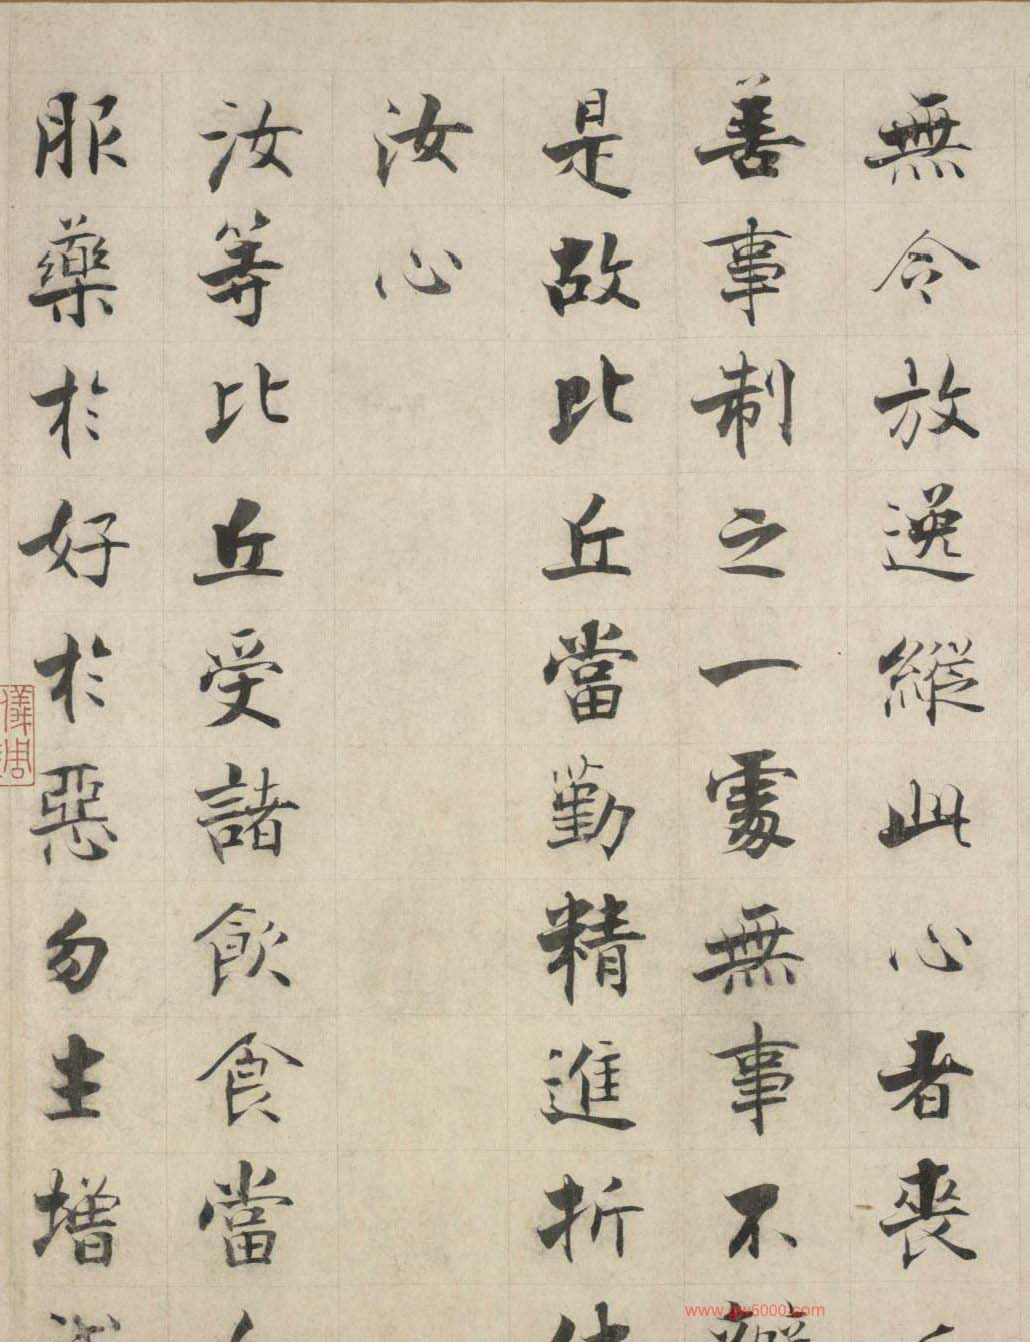 無令放逸縱此心者喪
善事制之一處無事不
是故比丘當勤精進折
汝心
汝等比丘受諸飲食當
服藥於好於惡勿生增
www.gw6000.com